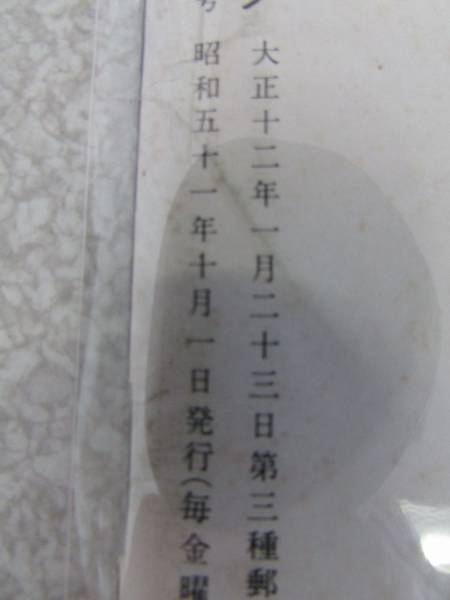 大正十二年一月二十三日第三種郵
号 昭和五十一年十月一日発行(毎金曜